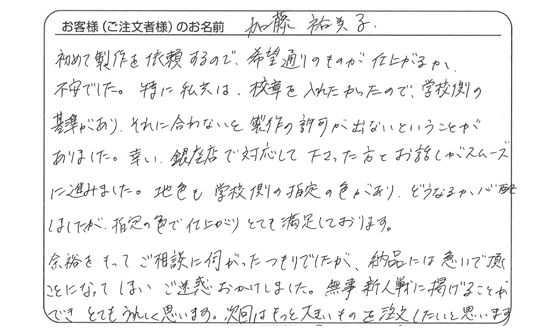 お客様(ご注文者様)のお名前 加藤 祐美子
初めて製作を依頼するので、希望通りのものが仕上がるか、
不安でした。特に私共は、校章を入れたかったので、学校側の
基準があり、それに合わないと製作の許可が出ないということが
ありました。幸い、銀座店で対応して下さった方とお話しがスムーズ
に進みました。地色も学校側の指定の色があり、どうなるか心配
しましたが、指定の色で仕上がりとても満足しております。
余裕をもってご相談に伺がったつもりでしたが、納品には急いで頂く
ことになってしまいご迷惑おかけしました。無事新人戦に掲げることが
でき とてもうれしく思います。次回はもっと大きいものを注文したいと思います